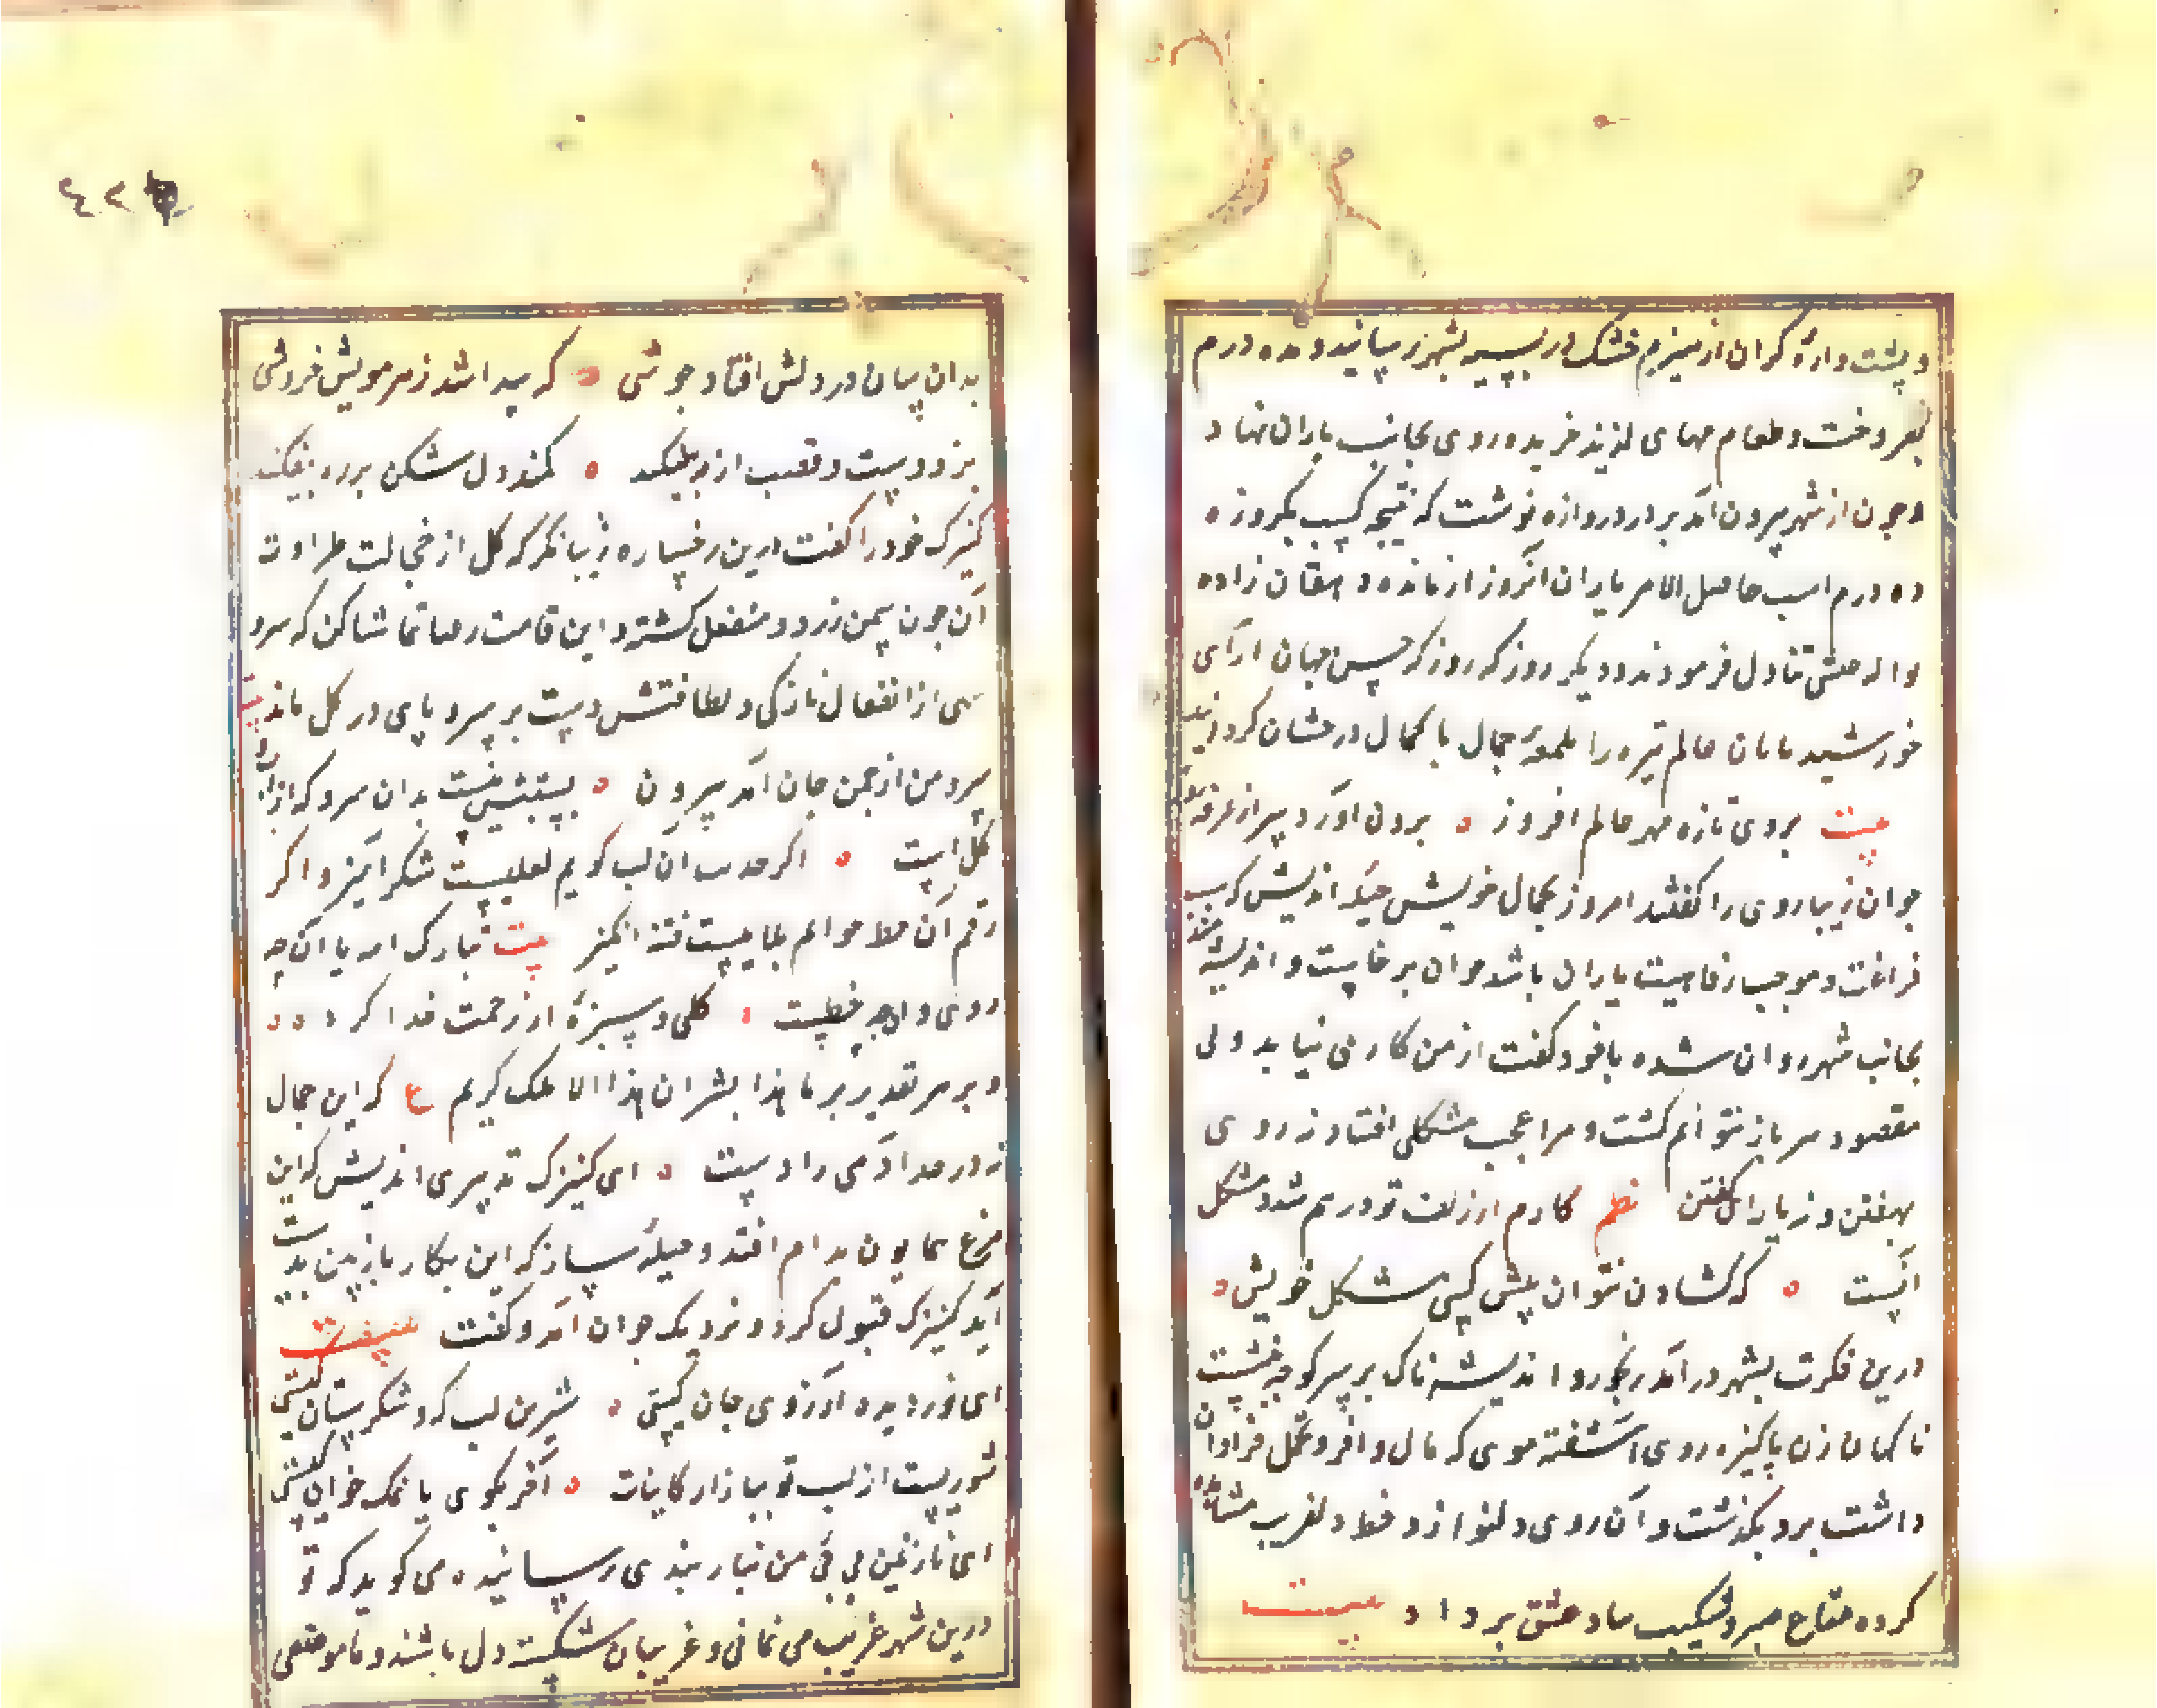 و پشتواره کران از هیزم خشک در بسته بشهر رسانید و ده درم
بفروخت و طعام‌های لذیذ خریده روی بجانب یاران نهاد
و چون از شهر بیرون آمد بر در دروازه نوشت که نتیجه کسب یکروزه
ده درم است حاصل الامر یاران آنروز از مائده دهقان زاده
نواله عشق تناول فرمودند و دیکر روز که روز که حسن جهان آرای
خورشید تابان عالم تیره را بلمعه جمال با کمال درخشان کردانید
بیت بروی تازه مهر عالم افروز ه برون آورد سر از غرفه روز
جوان زیباروی را کفتند امروز بجمال خویش حیله اندیش که سبب
فراغت و موجب رفاهیت یاران باشد جوان برخاست و اندیشه مند
بجانب شهر روان شده با خود کفت از من کاری نیاید ولی
مقصود هم باز نتوانم کشت و مرا عجب مشکلی افتاد نه روی
نهفتن و نه یارای کفتن نظم کارم از زلف تو درهم شد و مشکل
آنست ه که کشادن نتوان پیش کسی مشکل خویش ه
درین فکرت بشهر درآمد رنجور و اندیشه ناک بر سر کوچه نشست
ناکهان زن پاکیزه روی آشفته موی که مال وافر و تجمل فراوان
داشت برو بکذشت و آن روی دلنواز و خط دلفریب مشاهده
کرده متاع صبر و شکیب بباد عشق برداد بیت
بدان سان در دلش افتاد جوشی ه که پیدا شد ز هر مویش خروشی
بزد دست و نقاب از رخ بیفکند ه کمند دل شکن بر ره بیفکند
کنیزک خود را کفت درین رخساره زیبا نکر که کل از خجالت طراوت
آن چون سمن زرد و منفعل کشته و این قامت رعنا تماشا کن که سرو
سهی از انفعال نازکی و لطافتش دست بر سر و پای در کل مانده بیت
سرو من از چمن جان آمد بیرون ه بستستی نیست بدان سرو که از آب و
کل است ه اکر حدیث آن لب کویم لعلیست شکر آمیز و اکر
رقم آن خط خوانم بلاییست فتنه انکیز بیت تبارک الله یا آن چه
روی و آن چه خطیست ه کلی و سبزه از رحمت خدا کرد ه ه
و بر هر تقدیر بر ما هذا بشرا ان هذا الا ملک کریم ع که این جمال
نه در حد آدمی زادست ه ای کنیزک تدبیری اندیش که این
مرغ همایون بدام افتد و حیله ساز که این شکار نازنین بدست
آید کنیزک قبول کرد و نزدیک جوان آمد و کفت بیت
ای نور دیده آرزوی جان کیستی ه شیرین لب که و شکرستان کیستی
شوریست از لب تو ببازار کاینات ه آخر بکوی با نمک خوان کیستی
ای نازنین بی بی من نیازمندی رسانیده می کوید که تو
درین شهر غریب می نمائی و غریبان شکسته دل باشند و ما موضعی
٤٢٠